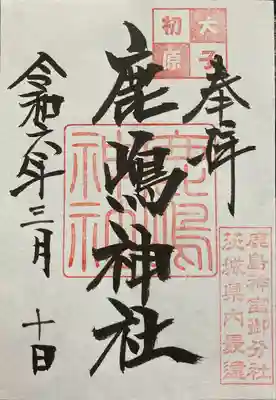 奉拝
大子
初原
鹿嶋神社
鹿嶋
神社
鹿島神宮御分社
茨城県内最遠
令和六年三月十日